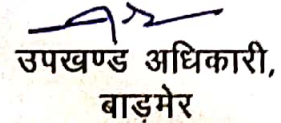 उपखण्ड अधिकारी,
बाड़मेर